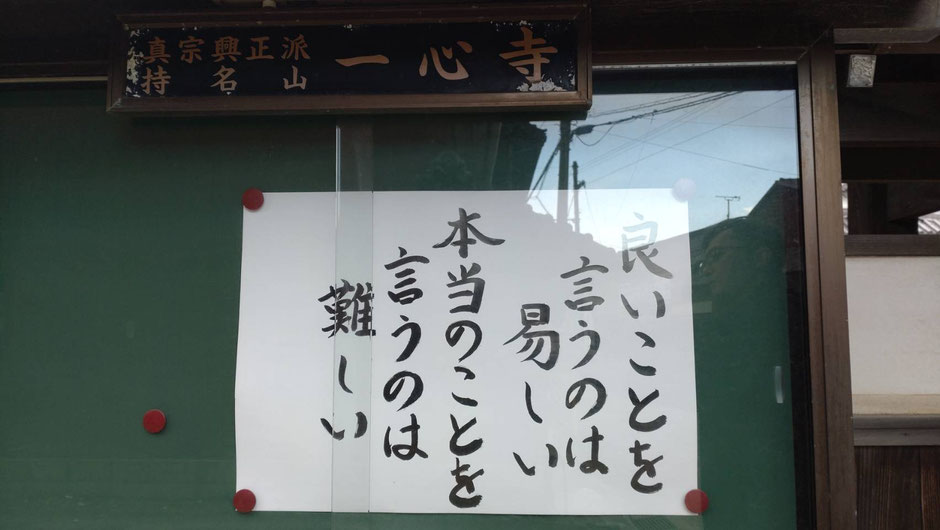 真宗興正派
持名山
一心寺
良いことを
言うのは
易しい
本当のことを
言うのは
難しい